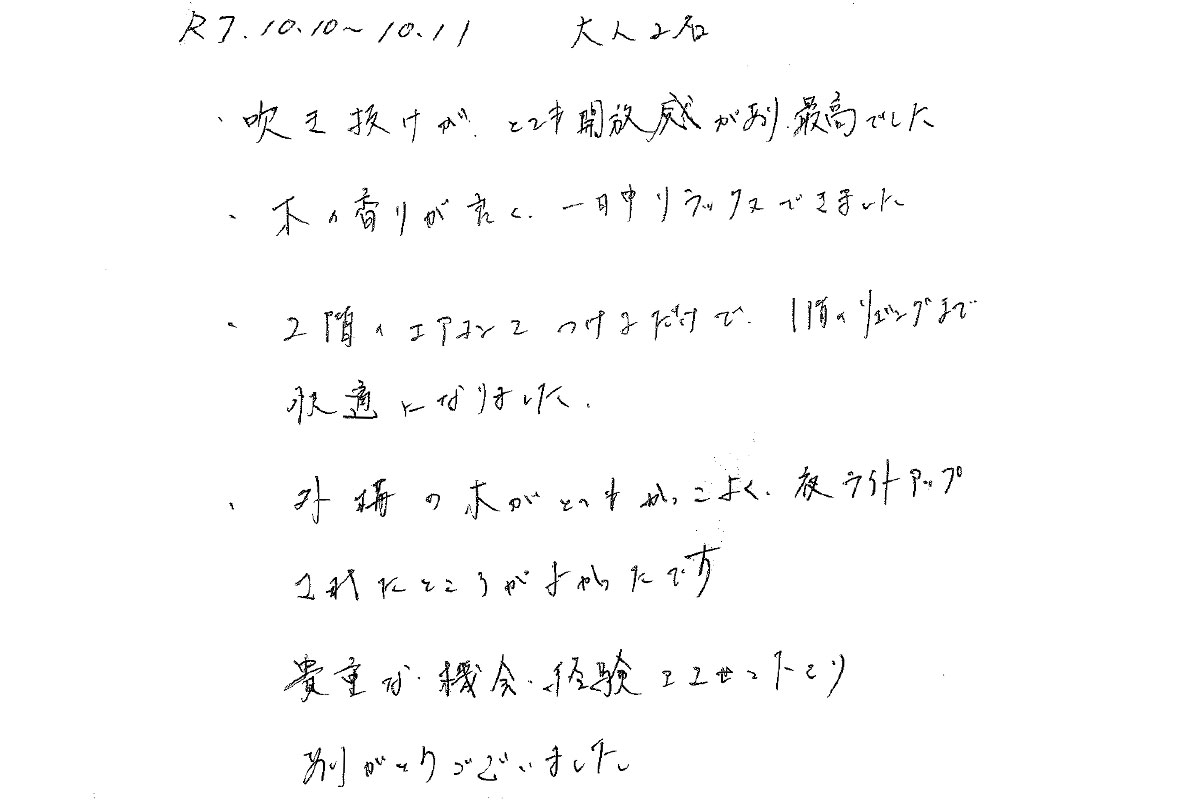 R7.10.10～10.11 大人2名
・吹き抜けが、とても開放感があり、最高でした
・木の香りが良く、一日中リラックスできました
・2階のエアコンをつけるだけで、1階のリビングまで
快適になりました。
・外構の木がとてもかっこよく、夜ライトアップ
されたところがよかったです
貴重な機会・経験をさせて頂き
ありがとうございました